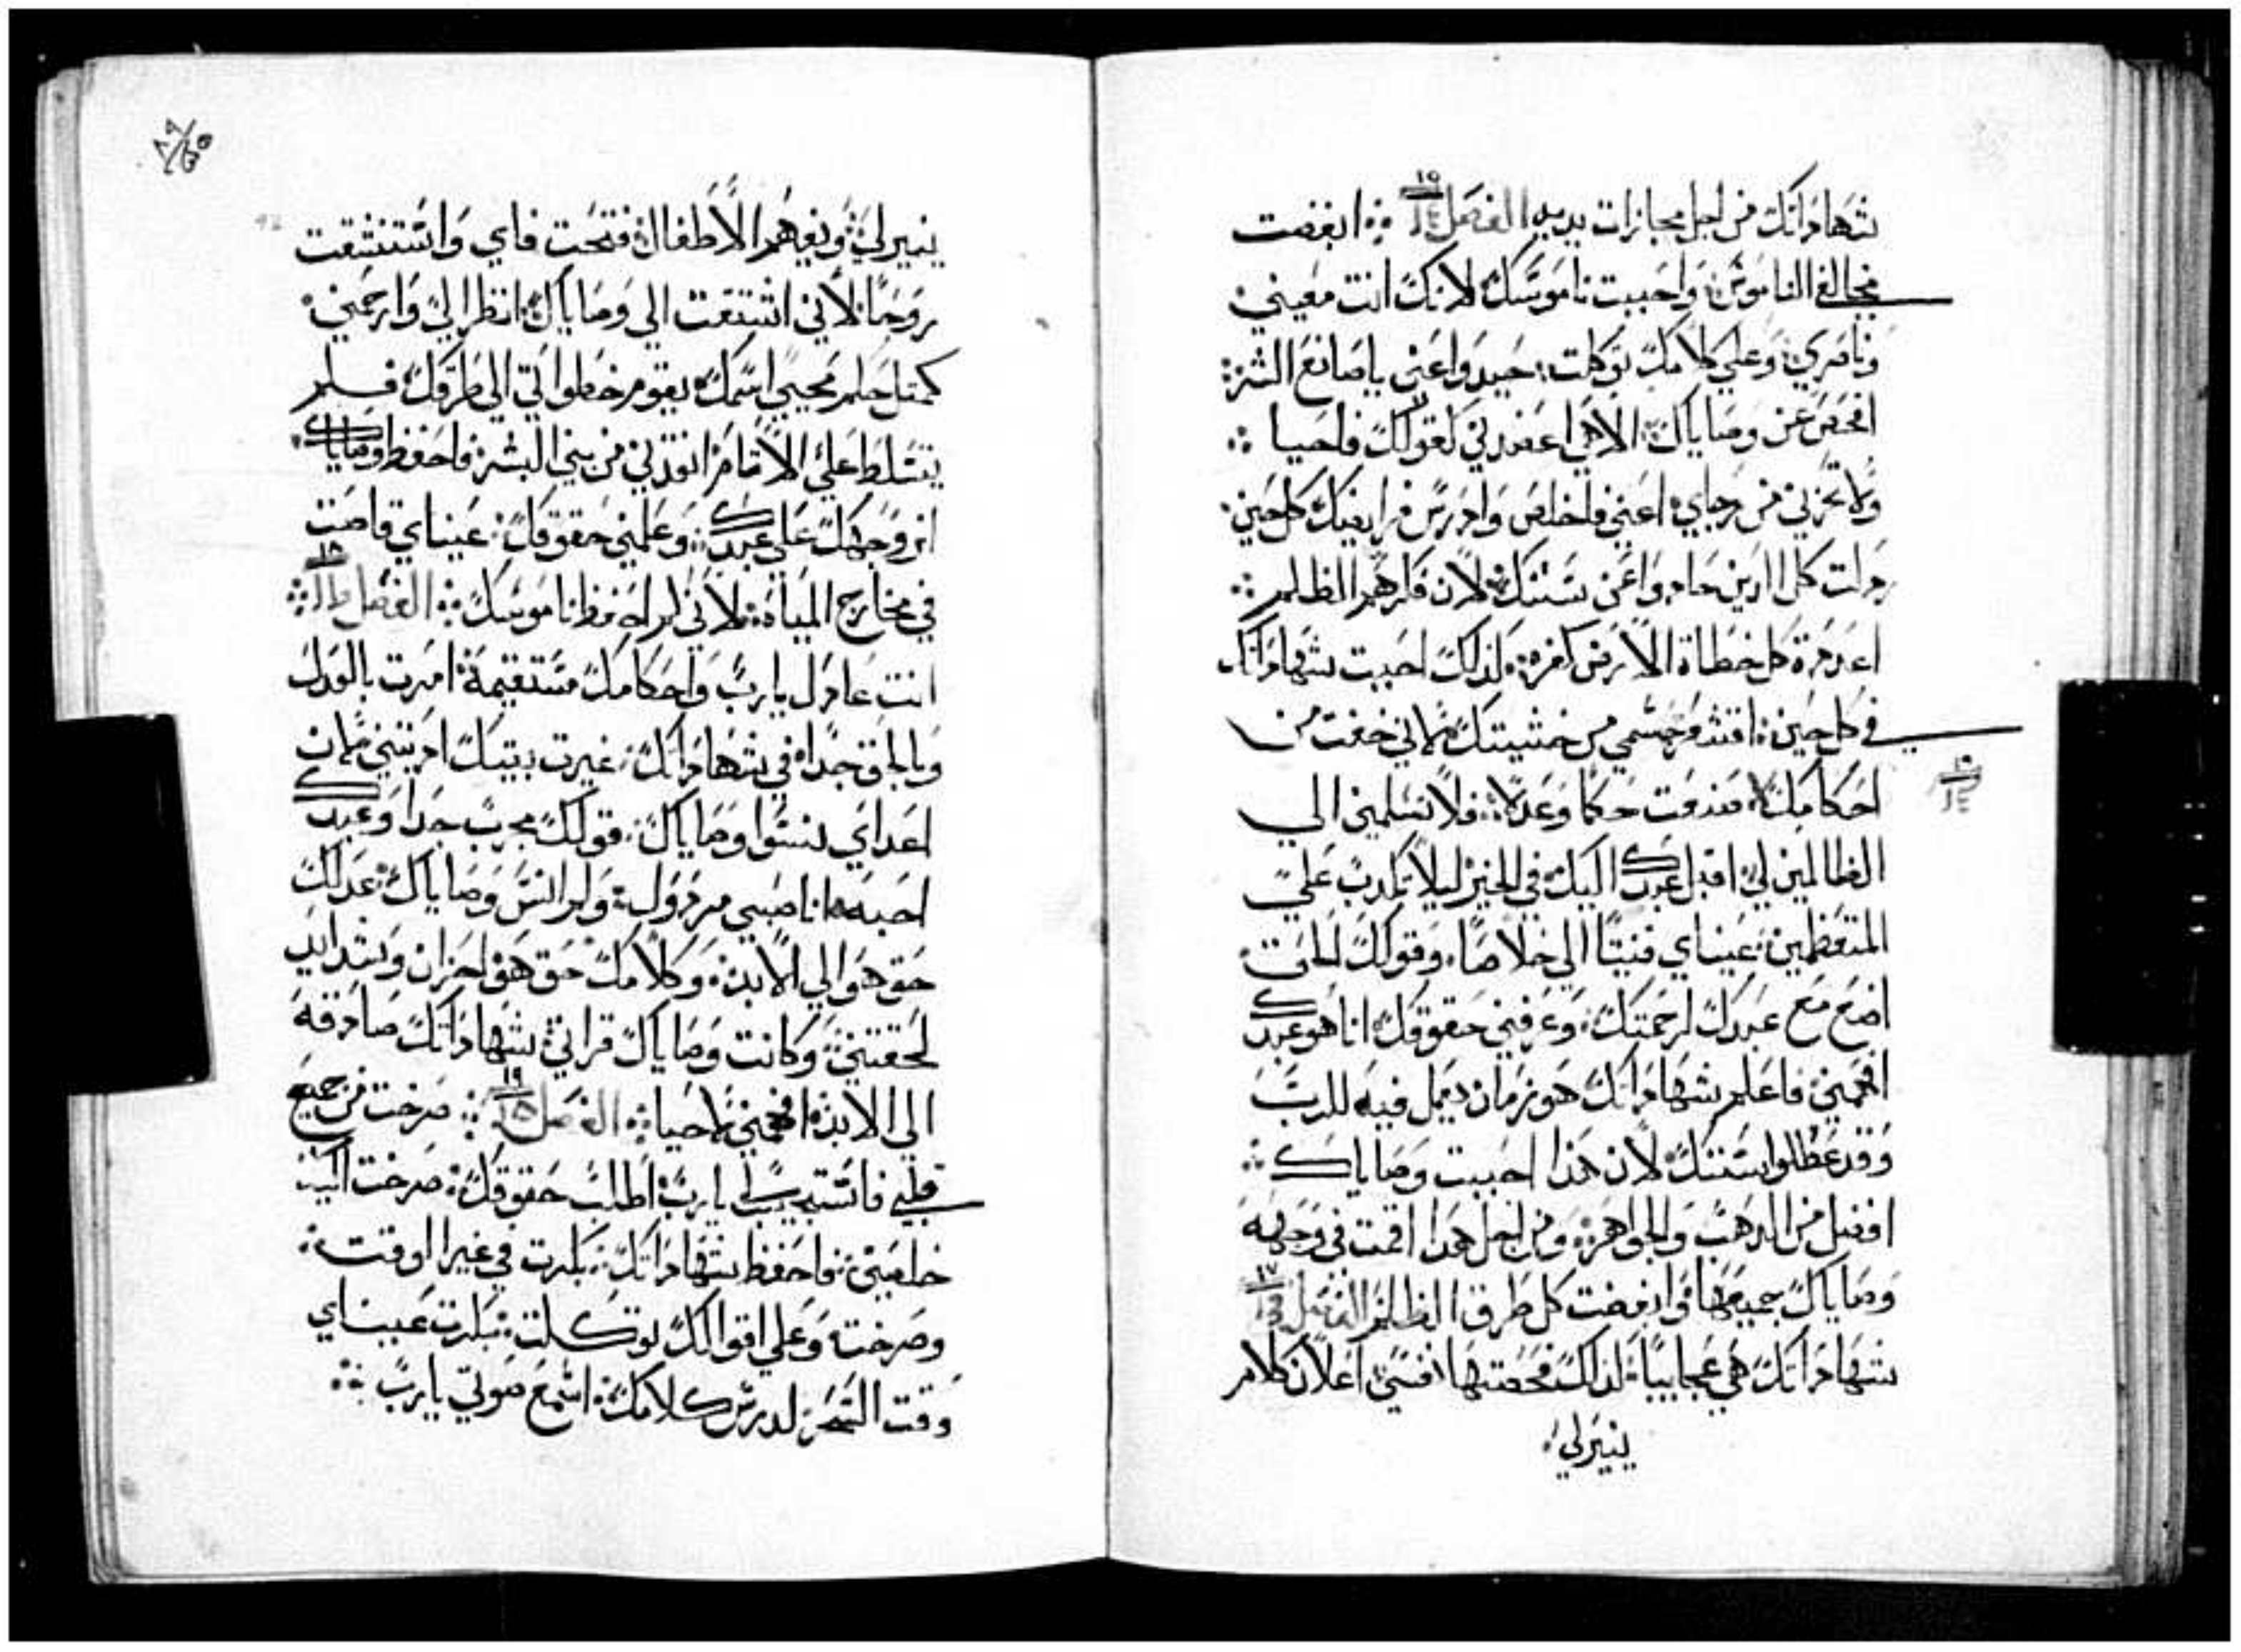 شهاداتك من اجل مجازات بديه الفصل ١٥ ابغضت
مخالفي الناموس واحببت ناموسك لانك انت معيني
وناصري وعلي كلامك توكلت حيدوا عني يا صانعي الشر
افحص عن وصاياك الاهي اعضدني كقولك فاحيا
ولا تخزني من رجاي اعني فاخلص وادرس فرايضك كل حين
رذلت كل الذين حادوا عن سننك لان فكرهم الظلم
اعد مرة كل خطاة الارض كفرة لذلك احببت شهاداتك
في كل حين اقشعر جسمي من خشيتك لاني خفت من
احكامك صنعت حكما وعدلا فلا تسلمني الي
الظالمين لي اقبل عبدك اليك في الخير ليلا يكذب علي
المتعظمين عيناي فنيتا الي خلاصك وقولك الحق
اصنع مع عبدك لرحمتك وعرفني حقوقك انا هو عبدك
افهمني فاعلم شهاداتك هو زمان يعمل فيه للرب
وقد عطلوا سننك لان هذا احببت وصاياك
افضل من الذهب والجواهر ومن اجل هذا اقمت في وجهه
وصاياك جميعها وابغضت كل طرق الظلم الفصل ١٧
شهاداتك هي عجايبا لذلك فحصتها نفسي اعلان كلامك
ينير لي
ينير لي ويفهم الاطفال فتحت فاي واستنشقت
روحا لاني اشتقت الي وصاياك انظر الي وارحمني
كمثل حكم محبي اسمك يقوم خطواتي الي طرقك فلم
يتسلط علي الاثام انقذني من بني البشر فاحفظ وصاياك
انر وجهك علي عبدك وعلمني حقوقك عيناي قاصت
في مخارج المياه لاني لم احفظ ناموسك الفصل ١٨
انت عادل يا رب واحكامك مستقيمة امرت بالعدل
وبالحق جدا في شهاداتك غيرت بيتك اذيبتني لان
اعداي نسوا وصاياك قولك مجرب جدا وعبدك
احبه انا صبي مرذول ولم انس وصاياك عدلك
حق هو الي الابد وكلامك حق هو احزان وشدايد
لحقتني وكانت وصاياك قراتي شهاداتك صادقة
الي الابد افهمني لاحيا الفصل ١٩ صرخت من جميع
قلبي فاستجيب لي يا رب اطلب حقوقك صرخت اليك
خلصني فاحفظ شهاداتك بكرت في غير اوقت
وصرخت وعلي اقوالك توكلت بكرت عيناي
وقت السحر لدرس كلامك اسمع صوتي يا رب